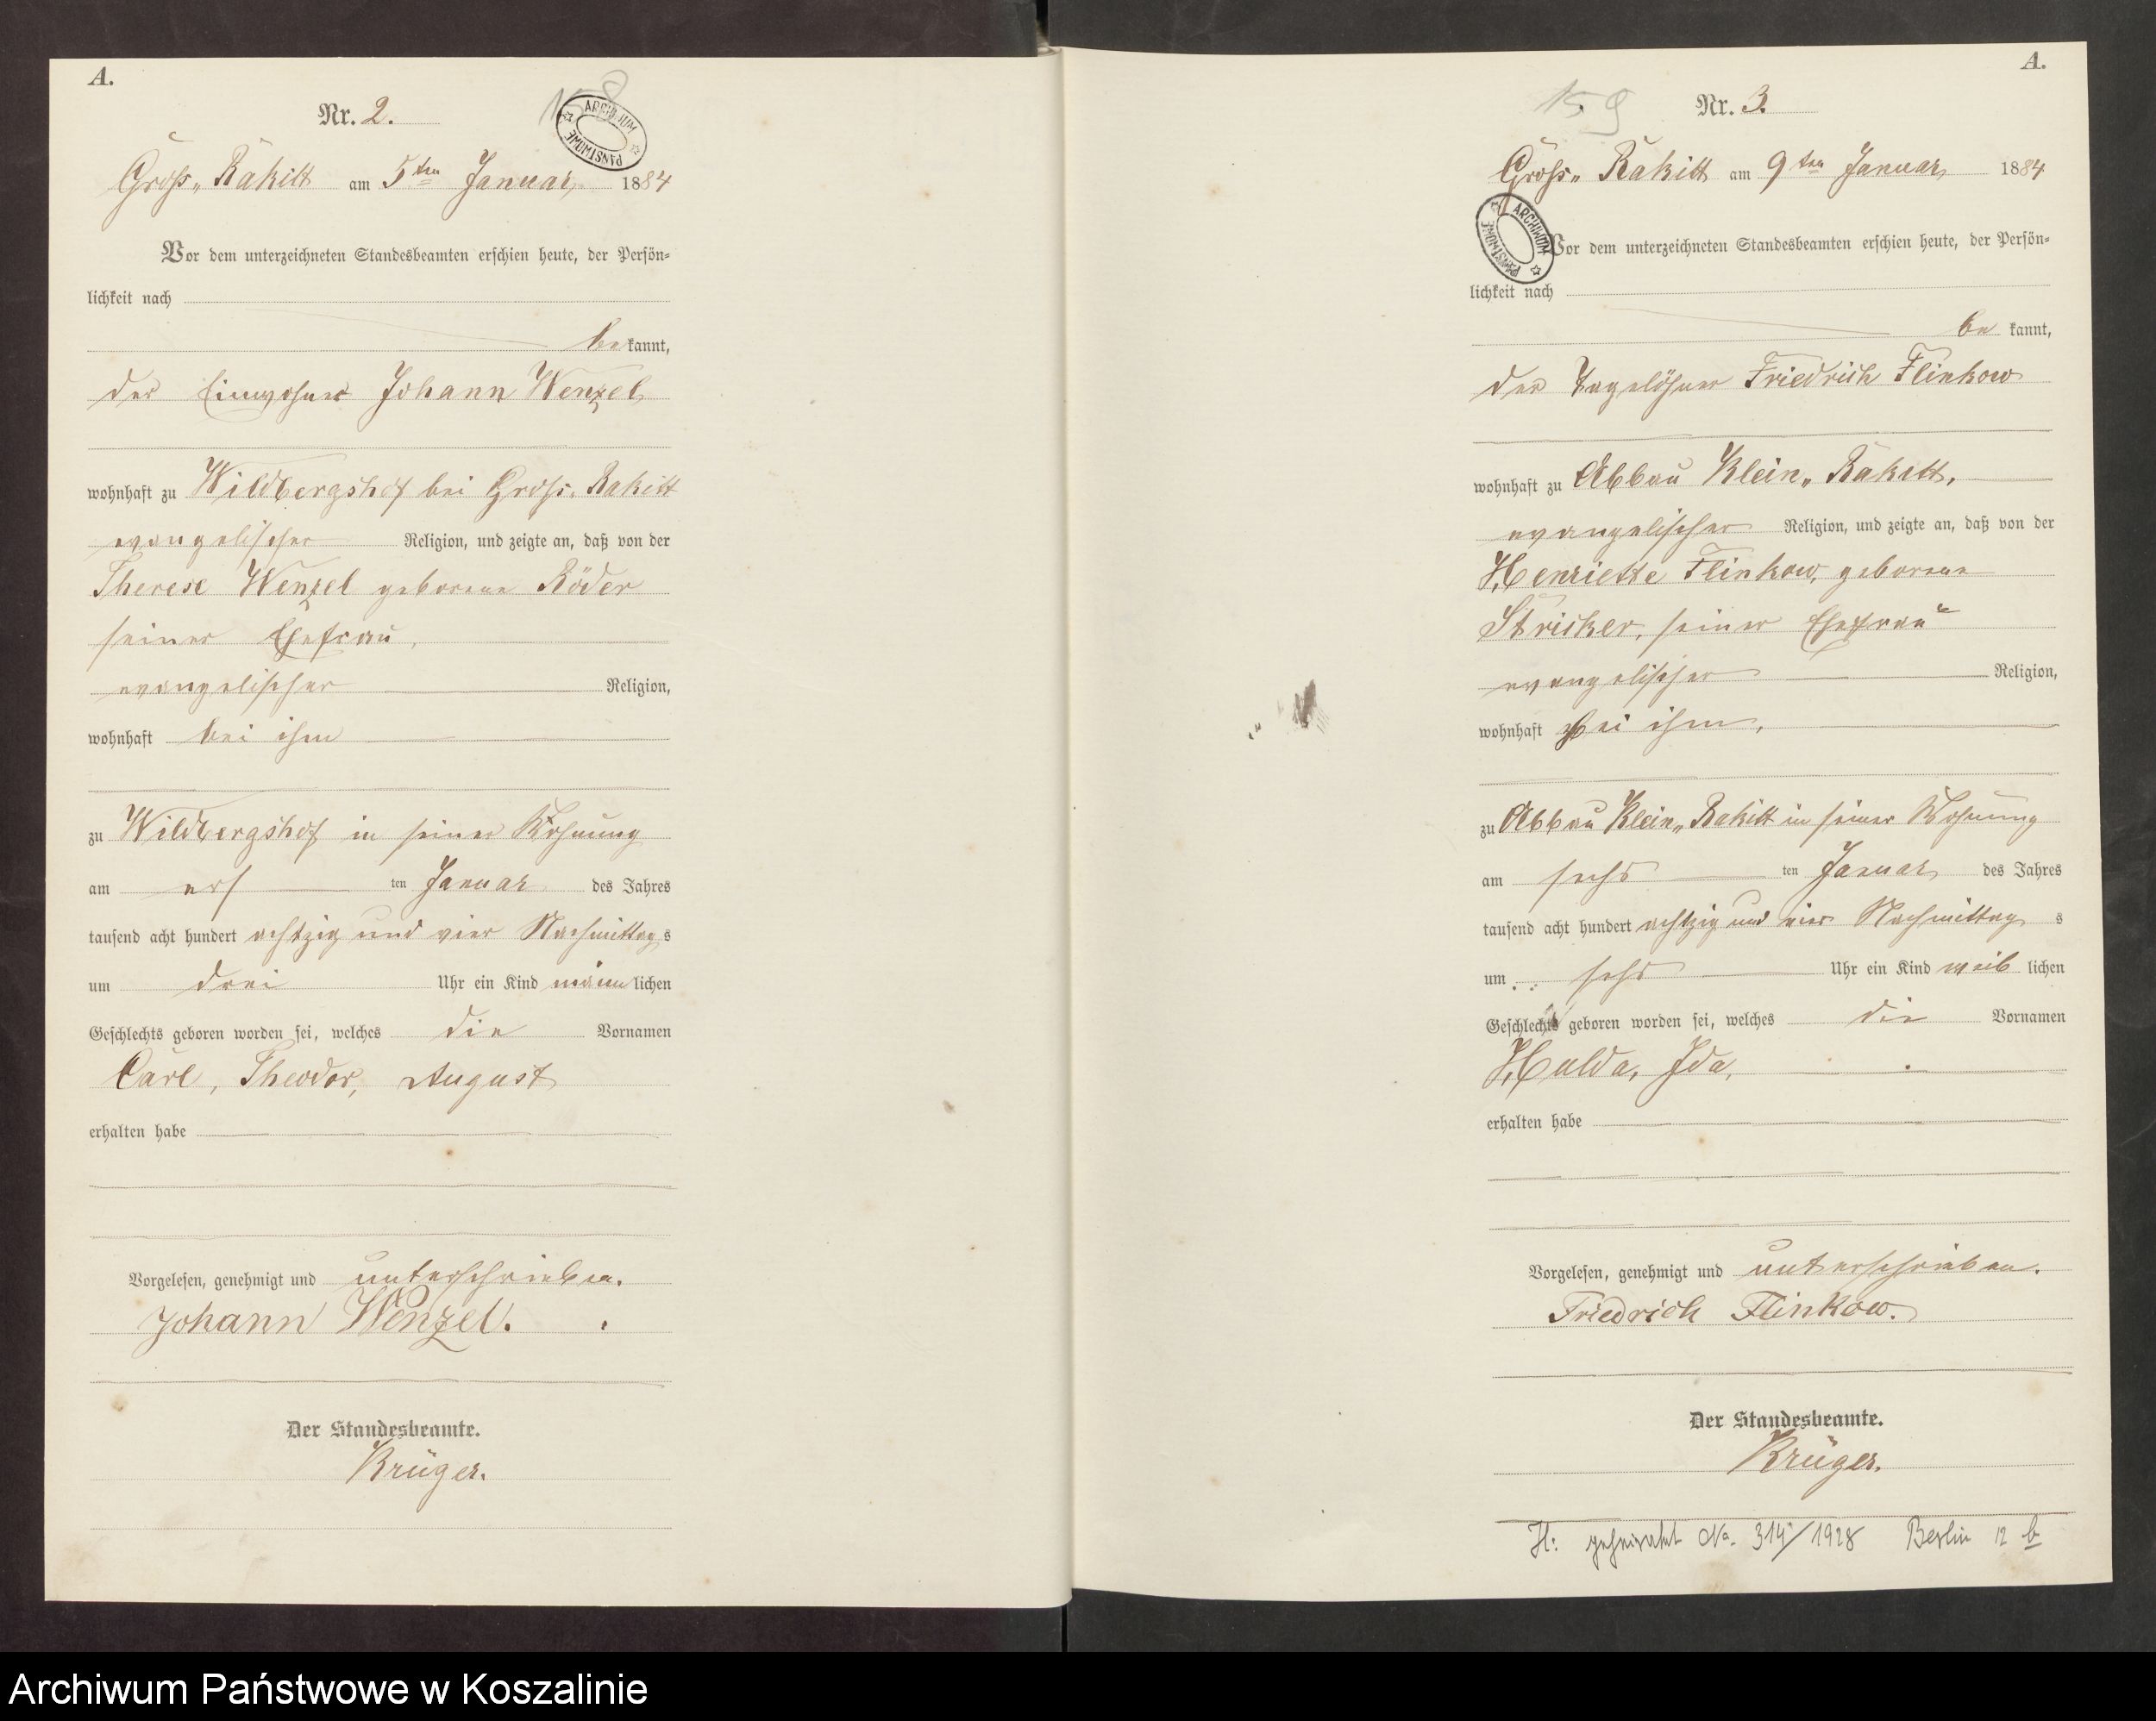 A.
Nr. 2.
158
ARCHIWUM PAŃSTWOWE
Gross„ Rakitt am 5ten Januar 1884
Vor dem unterzeichneten Standesbeamten erschien heute, der Persön-
lichkeit nach
be kannt,
der Einwohner Johann Wenzel
wohnhaft zu Wildbergshof bei Gross„ Rakitt
evangelischer Religion, und zeigte an, daß von der
Therese Wenzel geborene Röder
seiner Ehefrau,
evangelischer Religion,
wohnhaft bei ihm
zu Wildbergshof in seiner Wohnung
am ersten Januar des Jahres
tausend acht hundert achtzig und vier Nachmittags
um drei Uhr ein Kind männlichen
Geschlechts geboren worden sei, welches die Vornamen
Carl, Theodor, August
erhalten habe
Vorgelesen, genehmigt und unterschrieben.
Johann Wenzel.
Der Standesbeamte.
Krüger.
A.
159
Nr. 3.
Gross„ Rakitt am 9ten Januar 1884
ARCHIWUM PAŃSTWOWE
Vor dem unterzeichneten Standesbeamten erschien heute, der Persön-
lichkeit nach
be kannt,
der Tagelöhner Friedrich Flinkow
wohnhaft zu Abbau Klein„ Rakitt,
evangelischer Religion, und zeigte an, daß von der
Henriette Flinkow, geborene
Stricker, seiner Ehefrau
evangelischer Religion,
wohnhaft bei ihm,
zu Abbau Klein„ Rakitt in seiner Wohnung
am sechsten Januar des Jahres
tausend acht hundert achtzig und vier Nachmittags
um sechs Uhr ein Kind weiblichen
Geschlechts geboren worden sei, welches die Vornamen
Hulda, Ida,
erhalten habe
Vorgelesen, genehmigt und unterschrieben.
Friedrich Flinkow.
Der Standesbeamte.
Krüger.
H: geheiratet No. 314/1928 Berlin 12 b
Archiwum Państwowe w Koszalinie